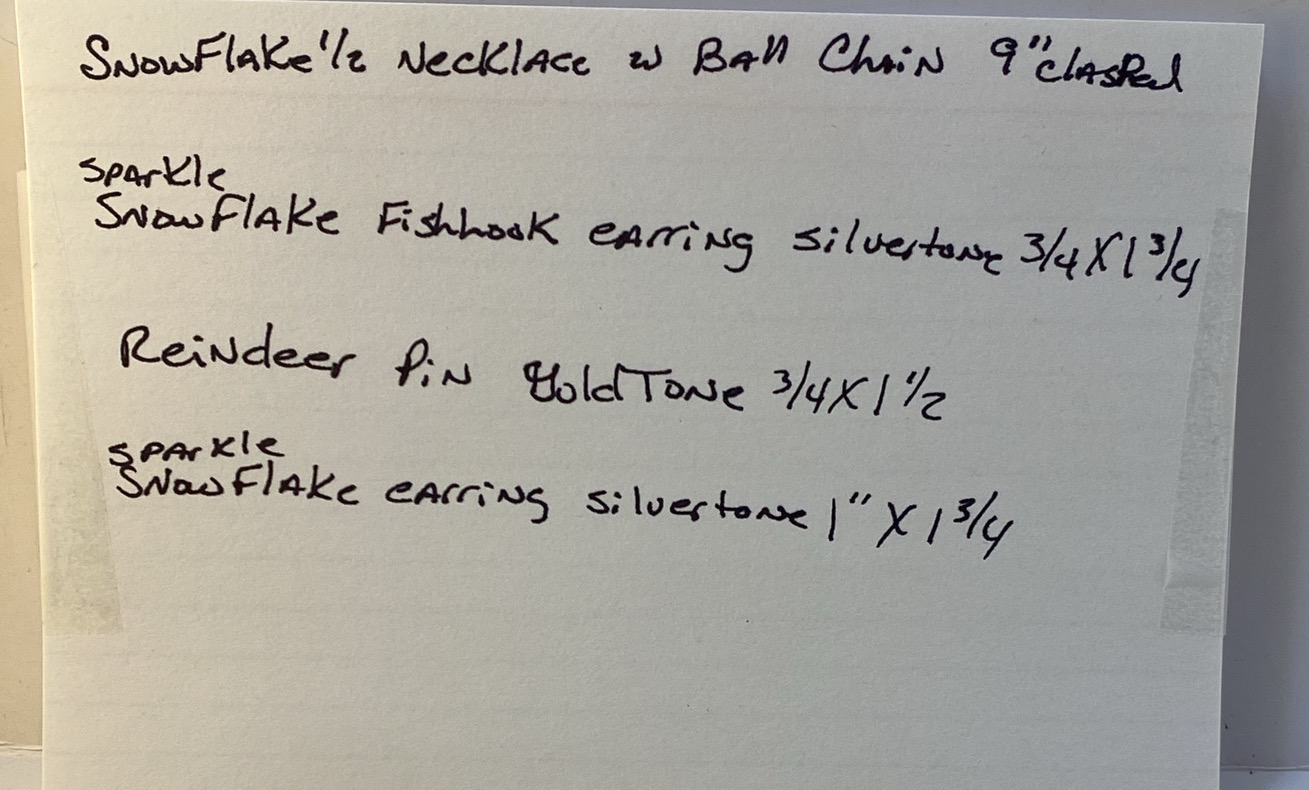 Snowflake 1/2 Necklace w Ball Chain 9" clasped
sparkle
Snowflake Fishhook earring silvertone 3/4 X 1 3/4
Reindeer Pin Gold Tone 3/4 X 1 1/2
sparkle
Snowflake earring silvertone 1" X 1 3/4